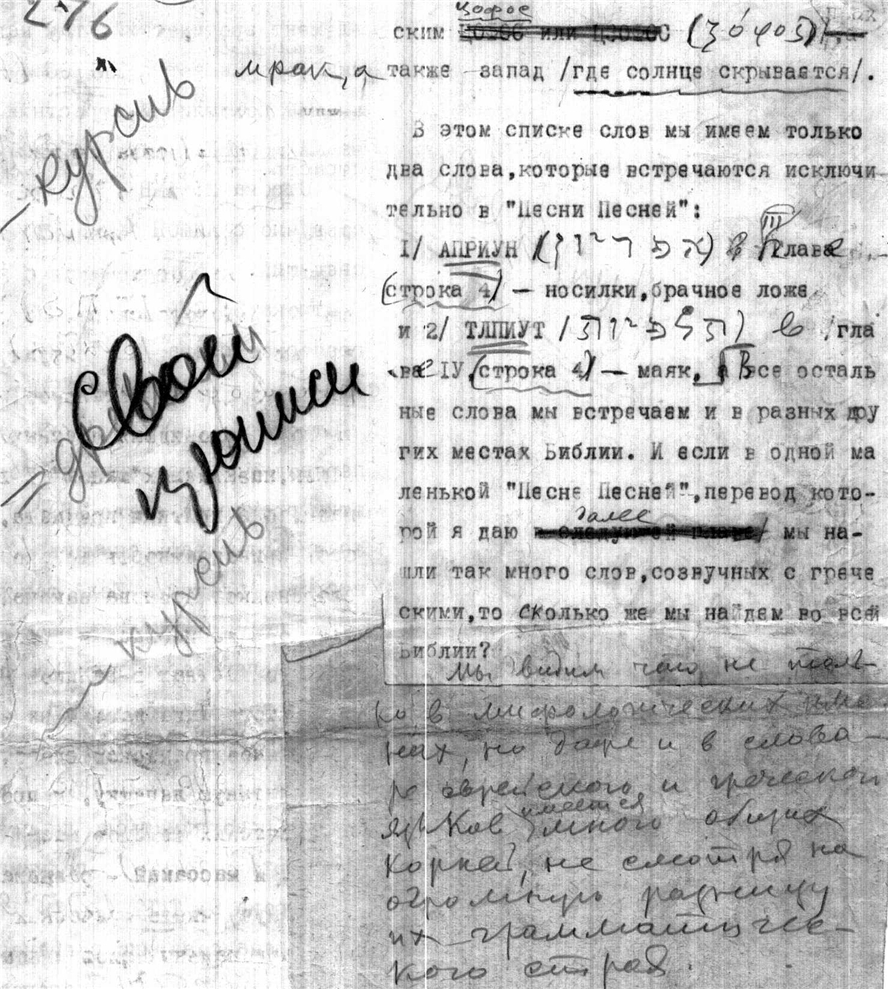 276
курсив
цофос
ским (ζόφος)
мрак, а также запад /где солнце скрывается/.
В этом списке слов мы имеем только
два слова,которые встречаются исключи-
тельно в "Песни Песней":
III
1/ АПРИУН (אפריון) в Главе
(строка 4) — носилки,брачное ложе
и 2/ ТЛПИУТ /תלפיות/ в гла
ве IV,(строка 4) — маяк. Все осталь
ные слова мы встречаем и в разных дру
гих местах Библии. И если в одной ма
ленькой "Песне Песней",перевод кото-
далее
рой я даю мы на-
шли так много слов,созвучных с грече
скими,то сколько же мы найдем во всей
Библии?
Мы видим что не толь-
ко в мифологических име
нах, но даже и в слова-
ре еврейского и греческого
имеется
языков много общих
корней, не смотря на
огромную разницу
их грамматичес-
кого строя.
свой
прописи
курсив